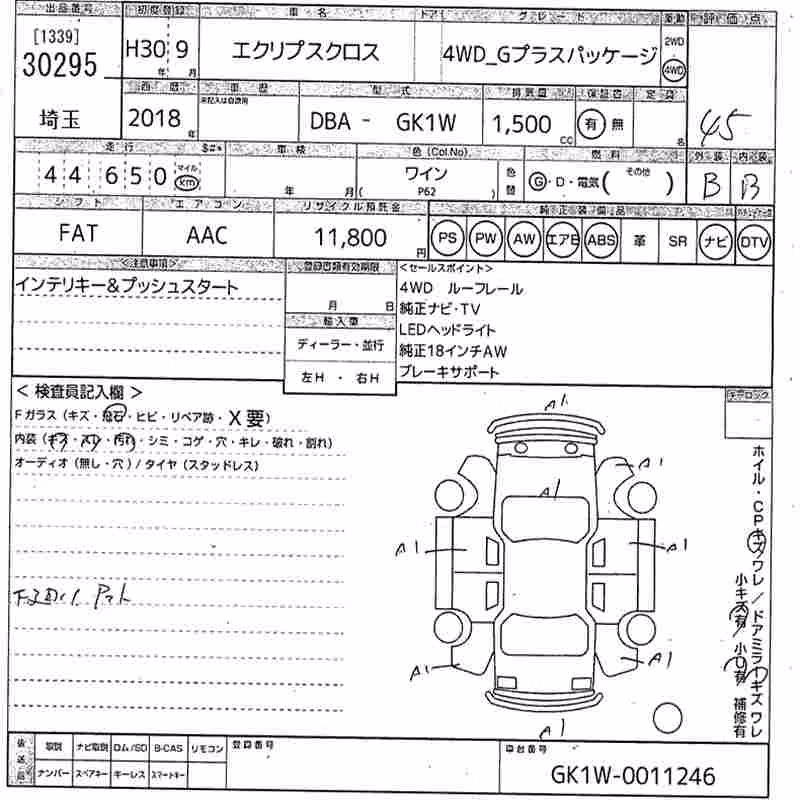 出品番号 初度登録 車名 ドア グレード 駆動 評価点
[1339]
30295 H30 9 エクリプスクロス 4WD_Gプラスパッケージ 2WD
4WD
年 月
西暦 車歴 型式 排気量 保証書 定員
未記入は自家用
埼玉 2018 年 DBA - GK1W 1,500 CC 有 無 名 4.5
走行 $#* 車検 色 (Col.No) 燃料 外装 内装
44650 マイル km 年 月 ワイン 色替 G・D・電気 (その他) B B
( P62 )
シフト エアコン リサイクル預託金 純正装備品
FAT AAC 11,800 円 PS PW AW エアB ABS 革 SR ナビ DTV
<注意事項> 登録書類有効期限 <セールスポイント>
インテリキー&プッシュスタート 月 日 4WD ルーフレール
純正ナビ・TV
輸入車 LEDヘッドライト
ディーラー・並行 純正18インチAW
左H ・ 右H ブレーキサポート
< 検査員記入欄 > キーロック
Fガラス (キズ・飛石・ヒビ・リペア跡・X要)
内装 (キズ・スレ・汚れ・シミ・コゲ・穴・キレ・破れ・割れ)
オーディオ (無し・穴) / タイヤ (スタッドレス)
A1
A1
A1
A1 A1
A1 A1
A1
ホイル・CPキズワレ/ドアミラーキズワレ
小キズ有/小U有 補修有
後送品 取説 ナビ取説 ロム/SD B-CAS リモコン 登録番号 車台番号
ナンバー スペアキー キーレス スマートキー GK1W-0011246